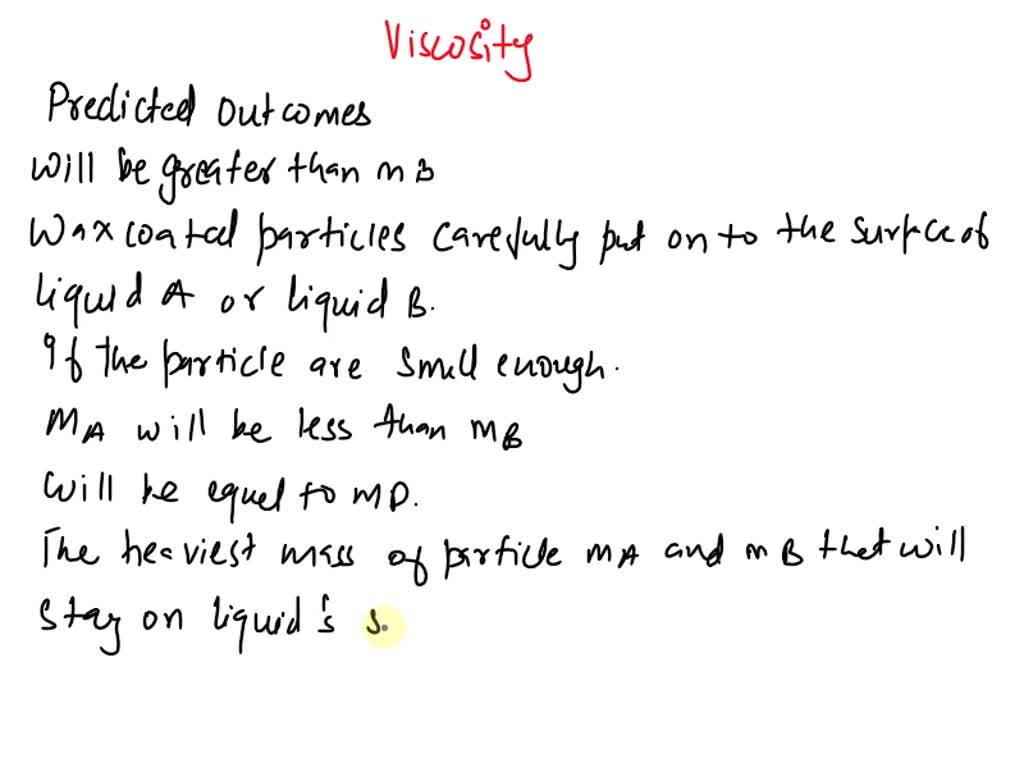 Viscosity
Predicted outcomes
will be greater than mB
Wax coated particles carefully put on to the surface of
liquid A or liquid B.
If the particle are small enough.
MA will be less than mB
will be equal to MD.
The heaviest mass of particle mA and mB that will
stay on liquid's s.